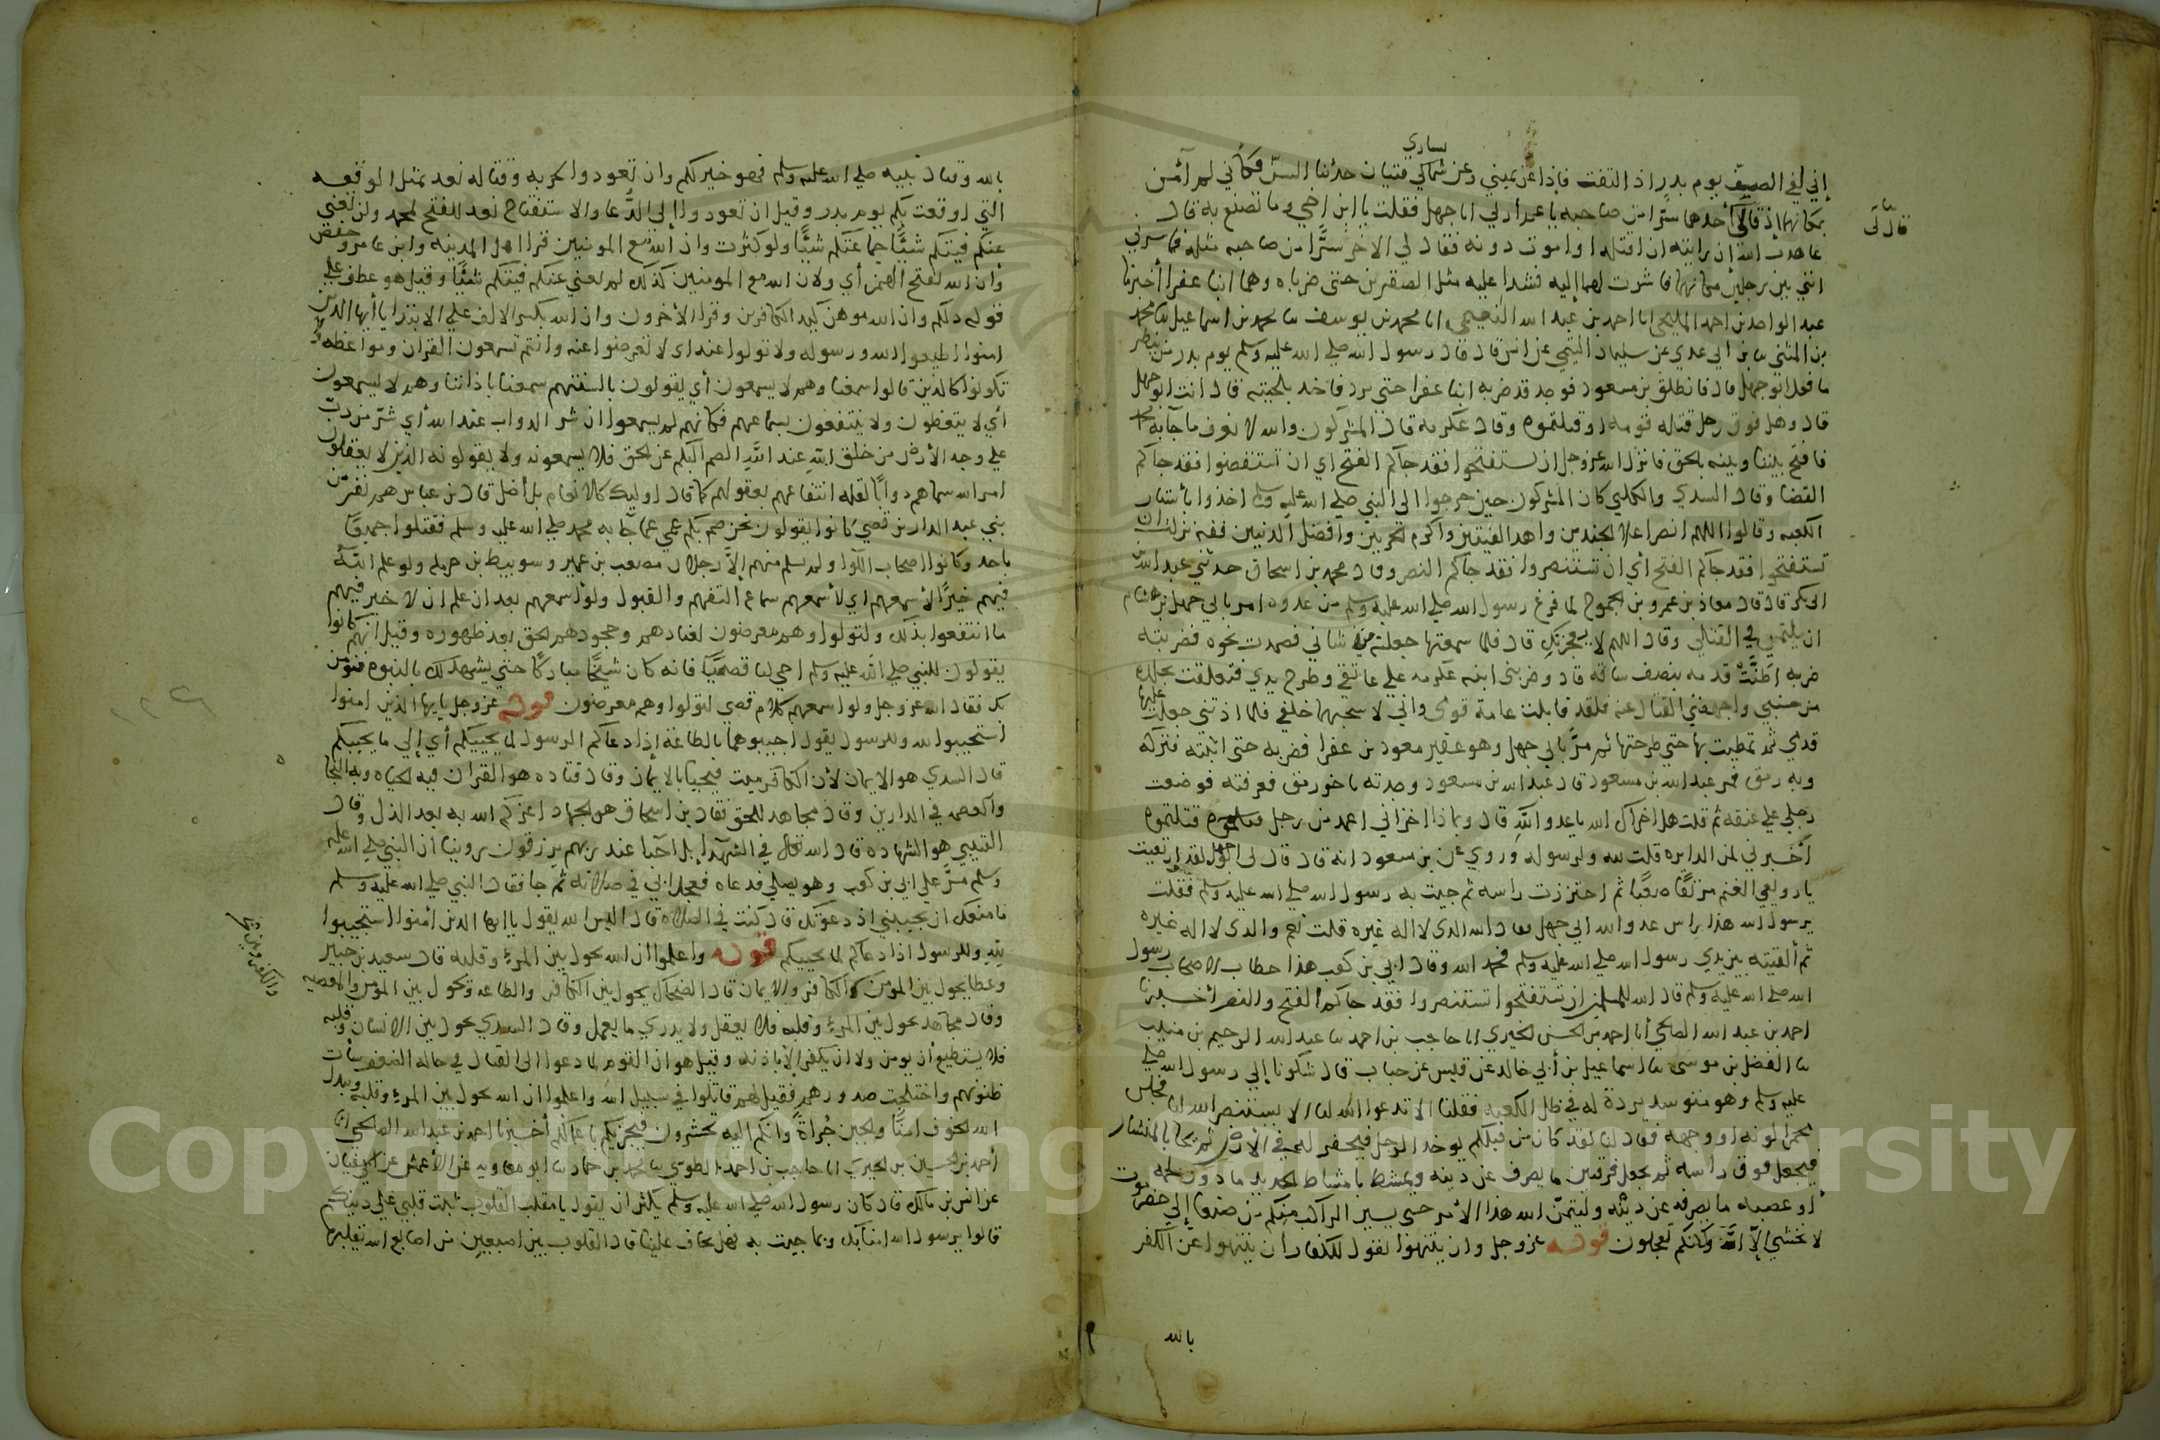 يساري
إني لفي الصف يوم بدر إذ التفت فإذا عن يميني وعن شمالي فتيان حدثنا السن فكأني لم آمن
بمكانهما إذ قال لي أحدهما سرًّا من صاحبه يا عم أرني أبا جهل فقلت يا ابن أخي وما تصنع به قال
قال لي
عاهدت الله إن رايته ان اقتله او اموت دونه فقال لي الاخر سرًّا من صاحبه مثله فما سرني
انني بين رجلين مكانهما فاشرت لهما إليه فشدا عليه مثل الصقرين حتى ضرباه وهما ابنا عفرا أخبرنا
عبد الواحد بن احمد المليحي انا احمد بن عبد الله النعيمي انا محمد بن يوسف ثنا محمد بن اسماعيل ثنا محمد
بن المثنى ثنا بن ابي عدي عن سليمان التيمي عن انس قال قال رسول الله صلى الله عليه وسلم يوم بدر من ينظر
ما فعل ابو جهل قال فانطلق بن مسعود فوجد قد ضربه ابنا عفرا حتى برد فاخذ بلحيته قال انت ابو جهل
قال وهل فوق رجل قتله قومه او قتلتموه وقال عكرمه قال المشركون والله لا نعرف ما جآ به محمد
فافتح بيننا وبينه بالحق فانزل الله عز وجل ان تستفتحوا فقد جاكم الفتح اي ان تستقضوا فقد جاكم
القضا وقال السدي والكلبي كان المشركون حين خرجوا الى النبي صلى الله عليه وسلم اخذوا بأستار
الكعبه وقالوا اللهم انصر اعلا الجندين واهدا الفئتين وأكرم الحزبين وأفضل الدينين ففيه نزلت ان
تستفتحوا فقد جاكم الفتح أي ان تستنصروا فقد جاكم النصر وقال محمد بن اسحاق حدثني عبد الله بن
ابي بكر قال قال معاذ بن عمرو بن الجموح لما فرغ رسول الله صلى الله عليه وسلم من عدوه امر بابي جهل بن هشام
ان يلتمس في القتلي وقال اللهم لا يعجزنك قال فلما سمعتها جعلته من شاني فصمدت نحوه فضربته
ضربه أطنَّتْ قدمه بنصف ساقه قال وضربني ابنه عكرمه على عاتقي وطرح يدي فتعلقت بجلده
من جنبي واجهضني القتال عنه فلقد قاتلت عامة يومي واني لاسحبها خلفي فلما اذتني جعلت عليها
قدمي ثم تمطيت بها حتى طرحتها ثم مرَّ بابي جهل وهو عقير معوذ بن عفرا فضربه حتى اثبته فتركه
وبه رمق فمر عبد الله بن مسعود قال عبد الله بن مسعود وجدته باخر رمق فعرفته فوضعت
رجلي على عنقه ثم قلت هل اخزاك الله يا عدو الله قال وبماذا اخزاني اعمد من رجل قتلتموه
أخبرني لمن الدايره قلت لله ولرسوله وروي عن بن مسعود انه قال قال لي ابو جهل لقد ارتقيت
يا رويعي الغنم مرتقًا صعبًا ثم احتززت راسه ثم جيت به رسول الله صلى الله عليه وسلم فقلت
يرسول الله هذا راس عدو الله ابي جهل فقال الله الذي لا اله غيره قلت نعم والذي لا اله غيره
ثم ألقيته بين يدي رسول الله صلى الله عليه وسلم فحمد الله وقال ابي بن كعب هذا خطاب لاصحاب رسول
الله صلى الله عليه وسلم قال الله للمسلمين ان تستفتحوا تستنصروا فقد جاكم الفتح والنصر أخبرنا
احمد بن عبد الله الصالحي أنا احمد بن الحسن الحيري انا حاجب بن احمد ثنا عبد الرحيم بن منيب
ثنا الفضل بن موسى ثنا اسماعيل بن أبي خالد عن قيس عن خباب قال شكونا إلى رسول الله صلى
عليه وسلم وهو متوسد بردة له في ظل الكعبه فقلنا الا تدعوا الله لنا الا يستنصر الله لنا فجلس
محمرا لونه او وجهه فقال لنا لقد كان من قبلكم يوخذ الرجل فيحفر له في الارض ثم يجا بالمنشار
فيجعل فوق راسه ثم يجعل فرقتين ما يصرف عن دينه ويمشط بامشاط الحديد ما دون لحمه
أو عصبه ما يصرفه عن دينه وليتمن الله هذا الامر حتى يسير الراكب منكم من صنعا إلى حضرموت
لا يخشى إلا الله ولكنكم تعجلون قوله عز وجل وان ينتهوا يقول للكفار أن ينتهوا عن الكفر
بالله
بالله وقتال نبيه صلى الله عليه وسلم فهو خير لكم وان تعودوا لحربه وقتاله نعد بمثل الوقعه
التي اوقعت بكم يوم بدر وقيل ان تعودوا إلى الدُّعا والاستفتاح نعد للفتح لمحمد ولن تغني
عنكم فيتكم شيئًا جماعتكم شيئًا ولو كثرت وان الله مع المومنين قرا اهل المدينه وابن عامر وحفص
وأن الله بفتح الهمز أي ولان الله مع المومنين كذلك لم تغني عنكم فيتكم شيئًا وقيل هو عطف على
قوله ذلكم وان الله موهن كيد الكافرين وقرا الأخرون وان الله بكسر الالف على الابتدا يا أيها الذين
امنوا اطيعوا الله ورسوله ولا تولوا عنه اي لا تعرضوا عنه وانتم تسمعون القران ومواعظه ولا
تكونوا كالذين قالوا سمعنا وهم لا يسمعون أي يقولون بالسنتهم سمعنا باذاننا وهم لا يسمعون
أي لا يتعظون ولا ينتفعون بسماعهم فكانهم لم يسمعوا ان شر الدواب عند الله أي شر من دبّ
على وجه الأرض من خلق الله عند الله الصم البكم عن الحق فلا يسمعونه ولا يقولونه الذين لا يعقلون
امر الله سماهم دوابًا لقله انتفاعهم بعقولهم كما قال اوليك كالانعام بل أضل قال بن عباس هم نفر من
بني عبد الدار بن قصي كانوا يقولون نحن صم بكم عمي عما جآ به محمد صلى الله عليه وسلم فقتلوا جميعا
باحد وكانوا اصحاب اللوا ولم يسلم منهم إلا رجلان مصعب بن عمير وسويبط بن حرمله ولو علم الله
فيهم خيرًا لأسمعهم اي لأسمعهم سماع التفهم والقبول ولو أسمعهم بعد ان علم ان لا خير فيهم
ما انتفعوا بذلك ولتولوا وهم معرضون لعنادهم وجحودهم الحق بعد ظهوره وقيل انهم كانوا
يقولون للنبي صلى الله عليه وسلم احي لنا قصيًّا فانه كان شيخًا مباركًا حتى يشهد لك بالنبوه فنومن
بك فقال الله عز وجل ولو اسمعهم كلام قصي لتولوا وهم معرضون قوله عز وجل يايها الذين امنوا
استجيبوا لله وللرسول يقول اجيبوهما بالطاعة إذا دعاكم الرسول لما يحييكم أي إلى ما يحييكم
قال السدي هو الايمان لأن الكافر ميت فيحيا بالايمان وقال قتاده هو القران فيه الحياه وبه النجاة
والعصمه في الدارين وقال مجاهد للحق وقال بن اسحاق هو الجهاد اعزكم الله به بعد الذل وقال
القتيبي هو الشهاده قال الله تعالى في الشهدآ بل أحيا عند ربهم يرزقون وروينا أن النبي صلى الله عليه
وسلم مرَّ على ابي بن كعب وهو يصلي فدعاه فعجل ابي في صلاته ثم جا فقال النبي صلى الله عليه وسلم
ما منعك ان تجيبني اذ دعوتك قال كنت في الصلاه قال اليس الله يقول يا ايها الذين امنوا استجيبوا
لله وللرسول اذا دعاكم لما يحييكم قوله واعلموا ان الله يحول بين المرء وقلبه قال سعيد بن جبير
وعطا يحول بين المومن والكافر والايمان قال الضحاك يحول بين الكافر والطاعه ويحول بين المومن والمعصيه
وقال مجاهد يحول بين المرء وقلبه فلا يعقل ولا يدري ما يعمل وقال السدي يحول بين الانسان وقلبه
فلا يستطيع أن يومن ولا ان يكفر الا باذنه وقيل هو ان القوم لما دعوا الى القتال في حاله الضعف سأت
ظنونهم واختلجت صدورهم فقيل لهم قاتلوا في سبيل الله واعلموا ان الله يحول بين المرء وقلبه ويبدل
الله الخوف امنًا والجبن جُرأةً وانكم اليه تحشرون فيجزيكم باعمالكم أخبرنا احمد بن عبد الله الصالحي انا
احمد بن الحسين بن الحيري انا حاجب بن احمد الطوسي ثنا محمد بن حماد ثنا ابو معاويه عن الأعمش عن ابي سفيان
عن انس بن مالك قال كان رسول الله صلى الله عليه وسلم يكثر أن يقول يا مقلب القلوب ثبت قلبي على دينك
قالوا يرسول الله امنا بك وبما جيت به فهل تخاف علينا قال القلوب بين اصبعين من اصابع الله يقلبها
Copyright © King Saud University